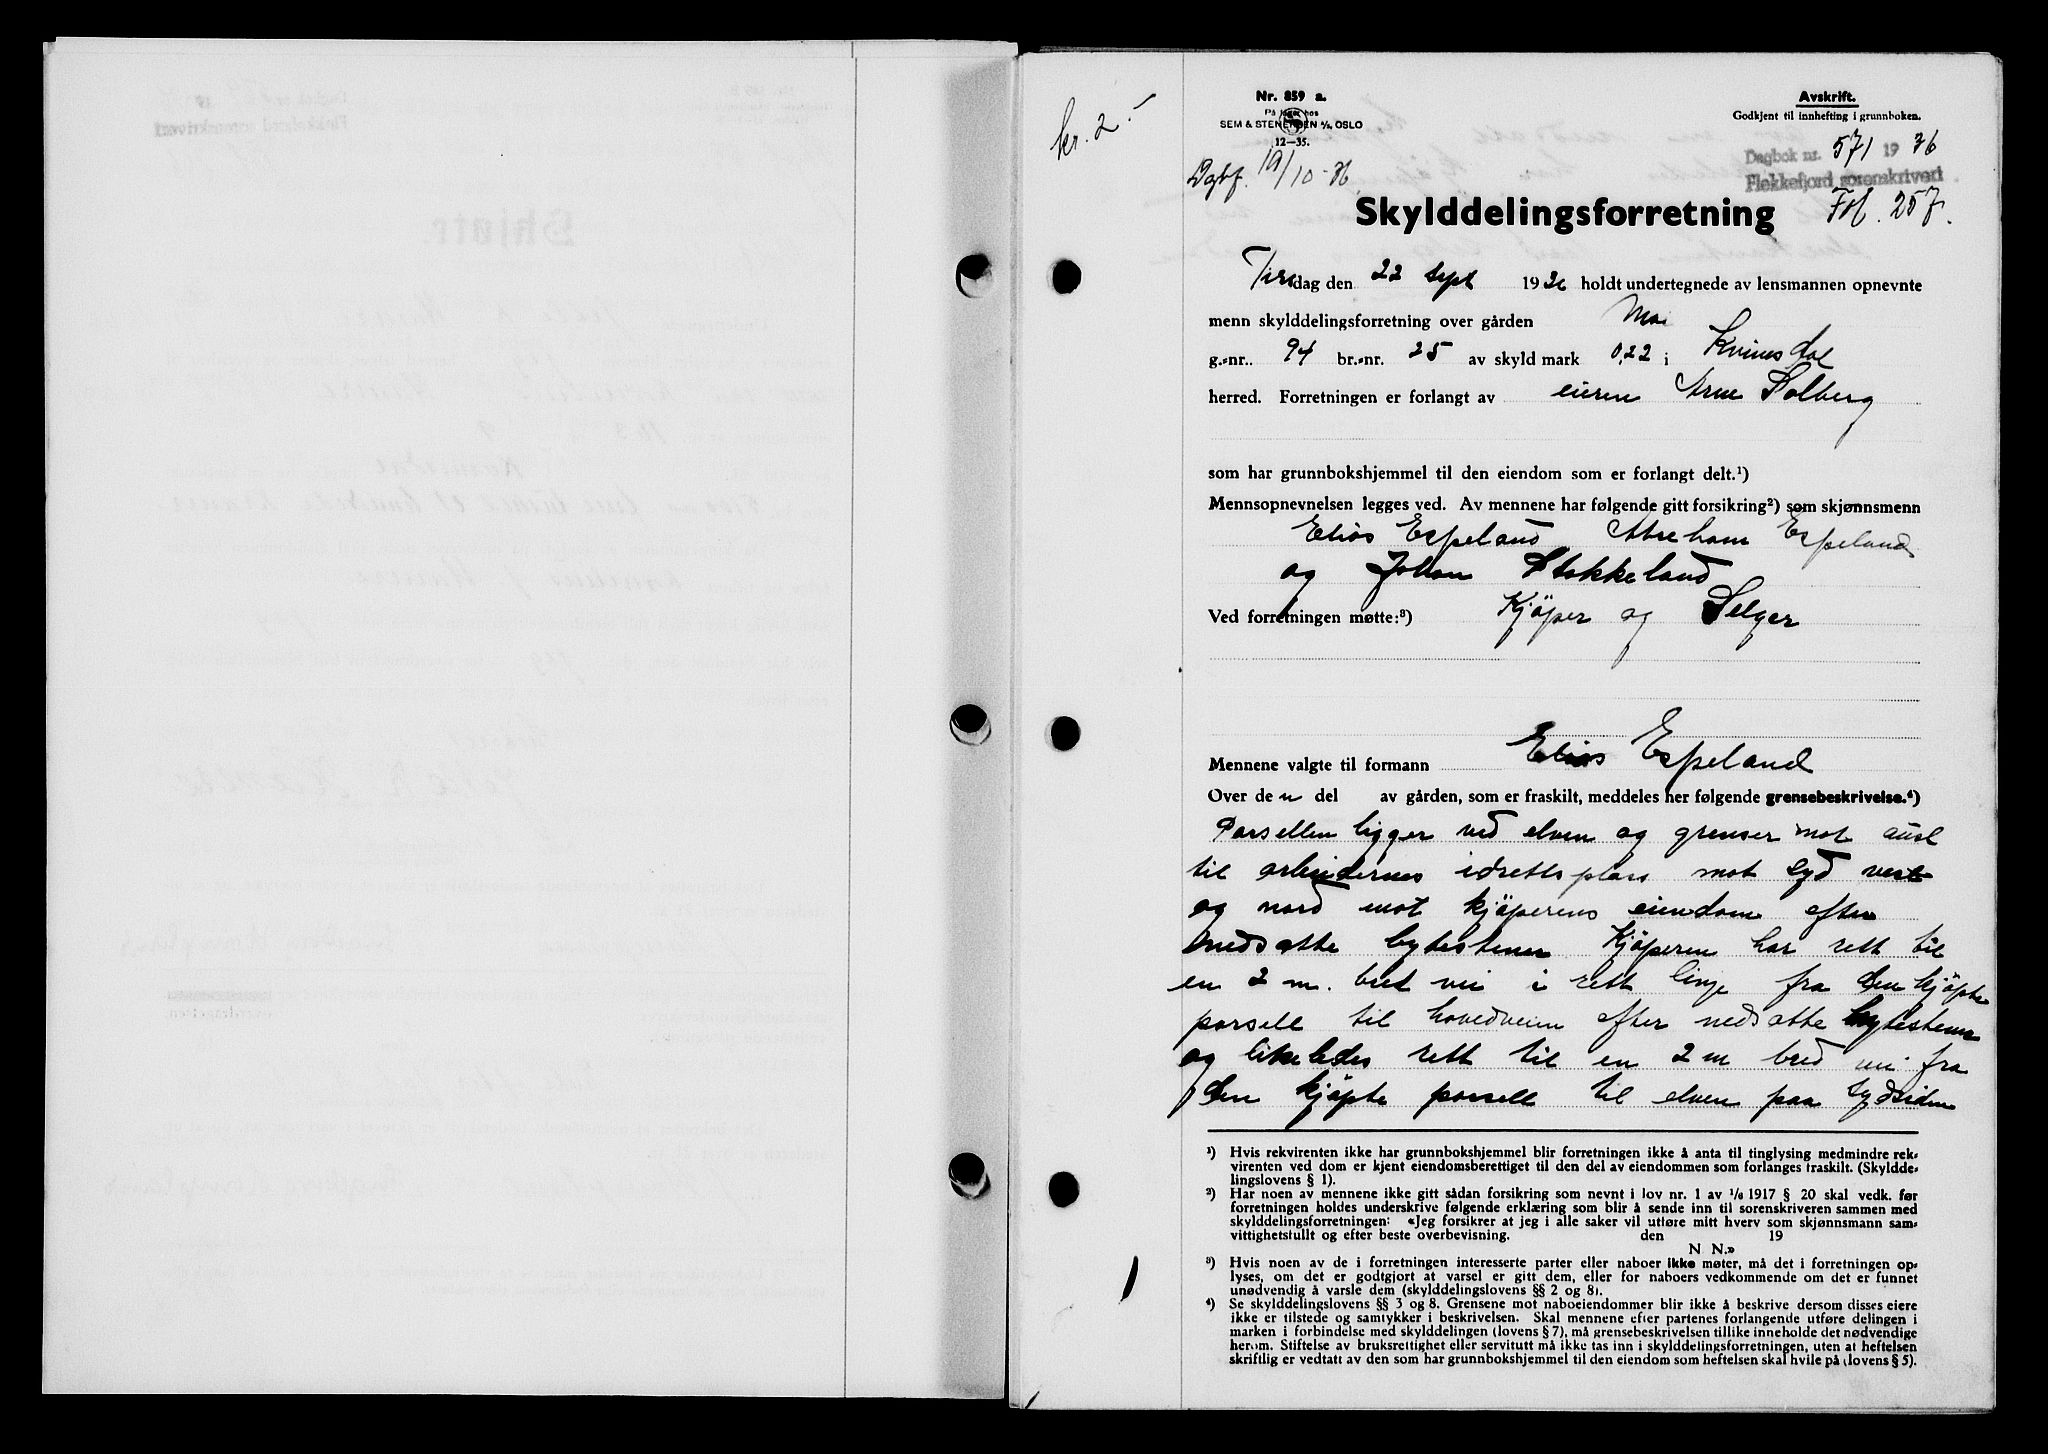 kr. 2.-
Nr. 859 a.
På lager hos
SEM & STENERSEN A/S, OSLO
12—35.
Avskrift.
Godkjent til innhefting i grunnboken.
Dagbok nr. 571 1936
Flekkefjord sorenskriveri
Dgbf. 19/10-36
Fol. 257.
Skylddelingsforretning
Tirsdag den 22 sept 1936 holdt undertegnede av lensmannen opnevnte
menn skylddelingsforretning over gården Moi
g.-nr. 94 br.-nr. 25 av skyld mark 0,22 i Kvinesdal
herred. Forretningen er forlangt av eieren Arne Solberg
som har grunnbokshjemmel til den eiendom som er forlangt delt.¹)
Mennsopnevnelsen legges ved. Av mennene har følgende gitt forsikring²) som skjønnsmenn
Elias Espeland Abraham Espeland
og Johan Stokkeland
Ved forretningen møtte:³) Kjöper og Selger
Mennene valgte til formann Elias Espeland
Over den del av gården, som er fraskilt, meddeles her følgende grensebeskrivelse.⁴)
Parsellen ligger ved elven og grenser mot aust
til arbeidernes idrettsplass mot syd vest
og nord mot kjöperens eiendom efter
nedsatte bytestener Kjöperen har rett til
en 2 m. bred vei i rett linje fra den kjöpte
parsell til hovedveien efter nedsatte bytestener
og likeledes rett til en 2 m bred vei fra
den kjöpte parsell til elven paa sydsiden
¹) Hvis rekvirenten ikke har grunnbokshjemmel blir forretningen ikke å anta til tinglysing medmindre rek-
virenten ved dom er kjent eiendomsberettiget til den del av eiendommen som forlanges fraskilt. (Skyldde-
lingslovens § 1).
²) Har noen av mennene ikke gitt sådan forsikring som nevnt i lov nr. 1 av 1/6 1917 § 20 skal vedk. før
forretningen holdes underskrive følgende erklæring som blir å sende inn til sorenskriveren sammen med
skylddelingsforretningen: «Jeg forsikrer at jeg i alle saker vil utføre mitt hverv som skjønnsmann sam-
vittighetsfullt og efter beste overbevisning. den 19
N. N.»
³) Hvis noen av de i forretningen interesserte parter eller naboer ikke møter, må det i forretningen op-
lyses, om det er godtgjort at varsel er gitt dem, eller for naboers vedkommende om det er funnet
unødvendig å varsle dem (skylddelingslovens §§ 2 og 8).
⁴) Se skylddelingslovens §§ 3 og 8. Grensene mot naboeiendommer blir ikke å beskrive dersom disses eiere
ikke er tilstede og samtykker i beskrivelsen. Skal mennene efter partenes forlangende utføre delingen i
marken i forbindelse med skylddelingen (lovens § 7), må grensebeskrivelsen tillike inneholde det nødvendige
herom. Stiftelse av bruksrettighet eller servitutt må ikke tas inn i skylddelingsforretningen, uten at heftelsen
skriftlig er vedtatt av den som har grunnbokshjemmel til den eiendom som heftelsen skal hvile på (lovens § 5).